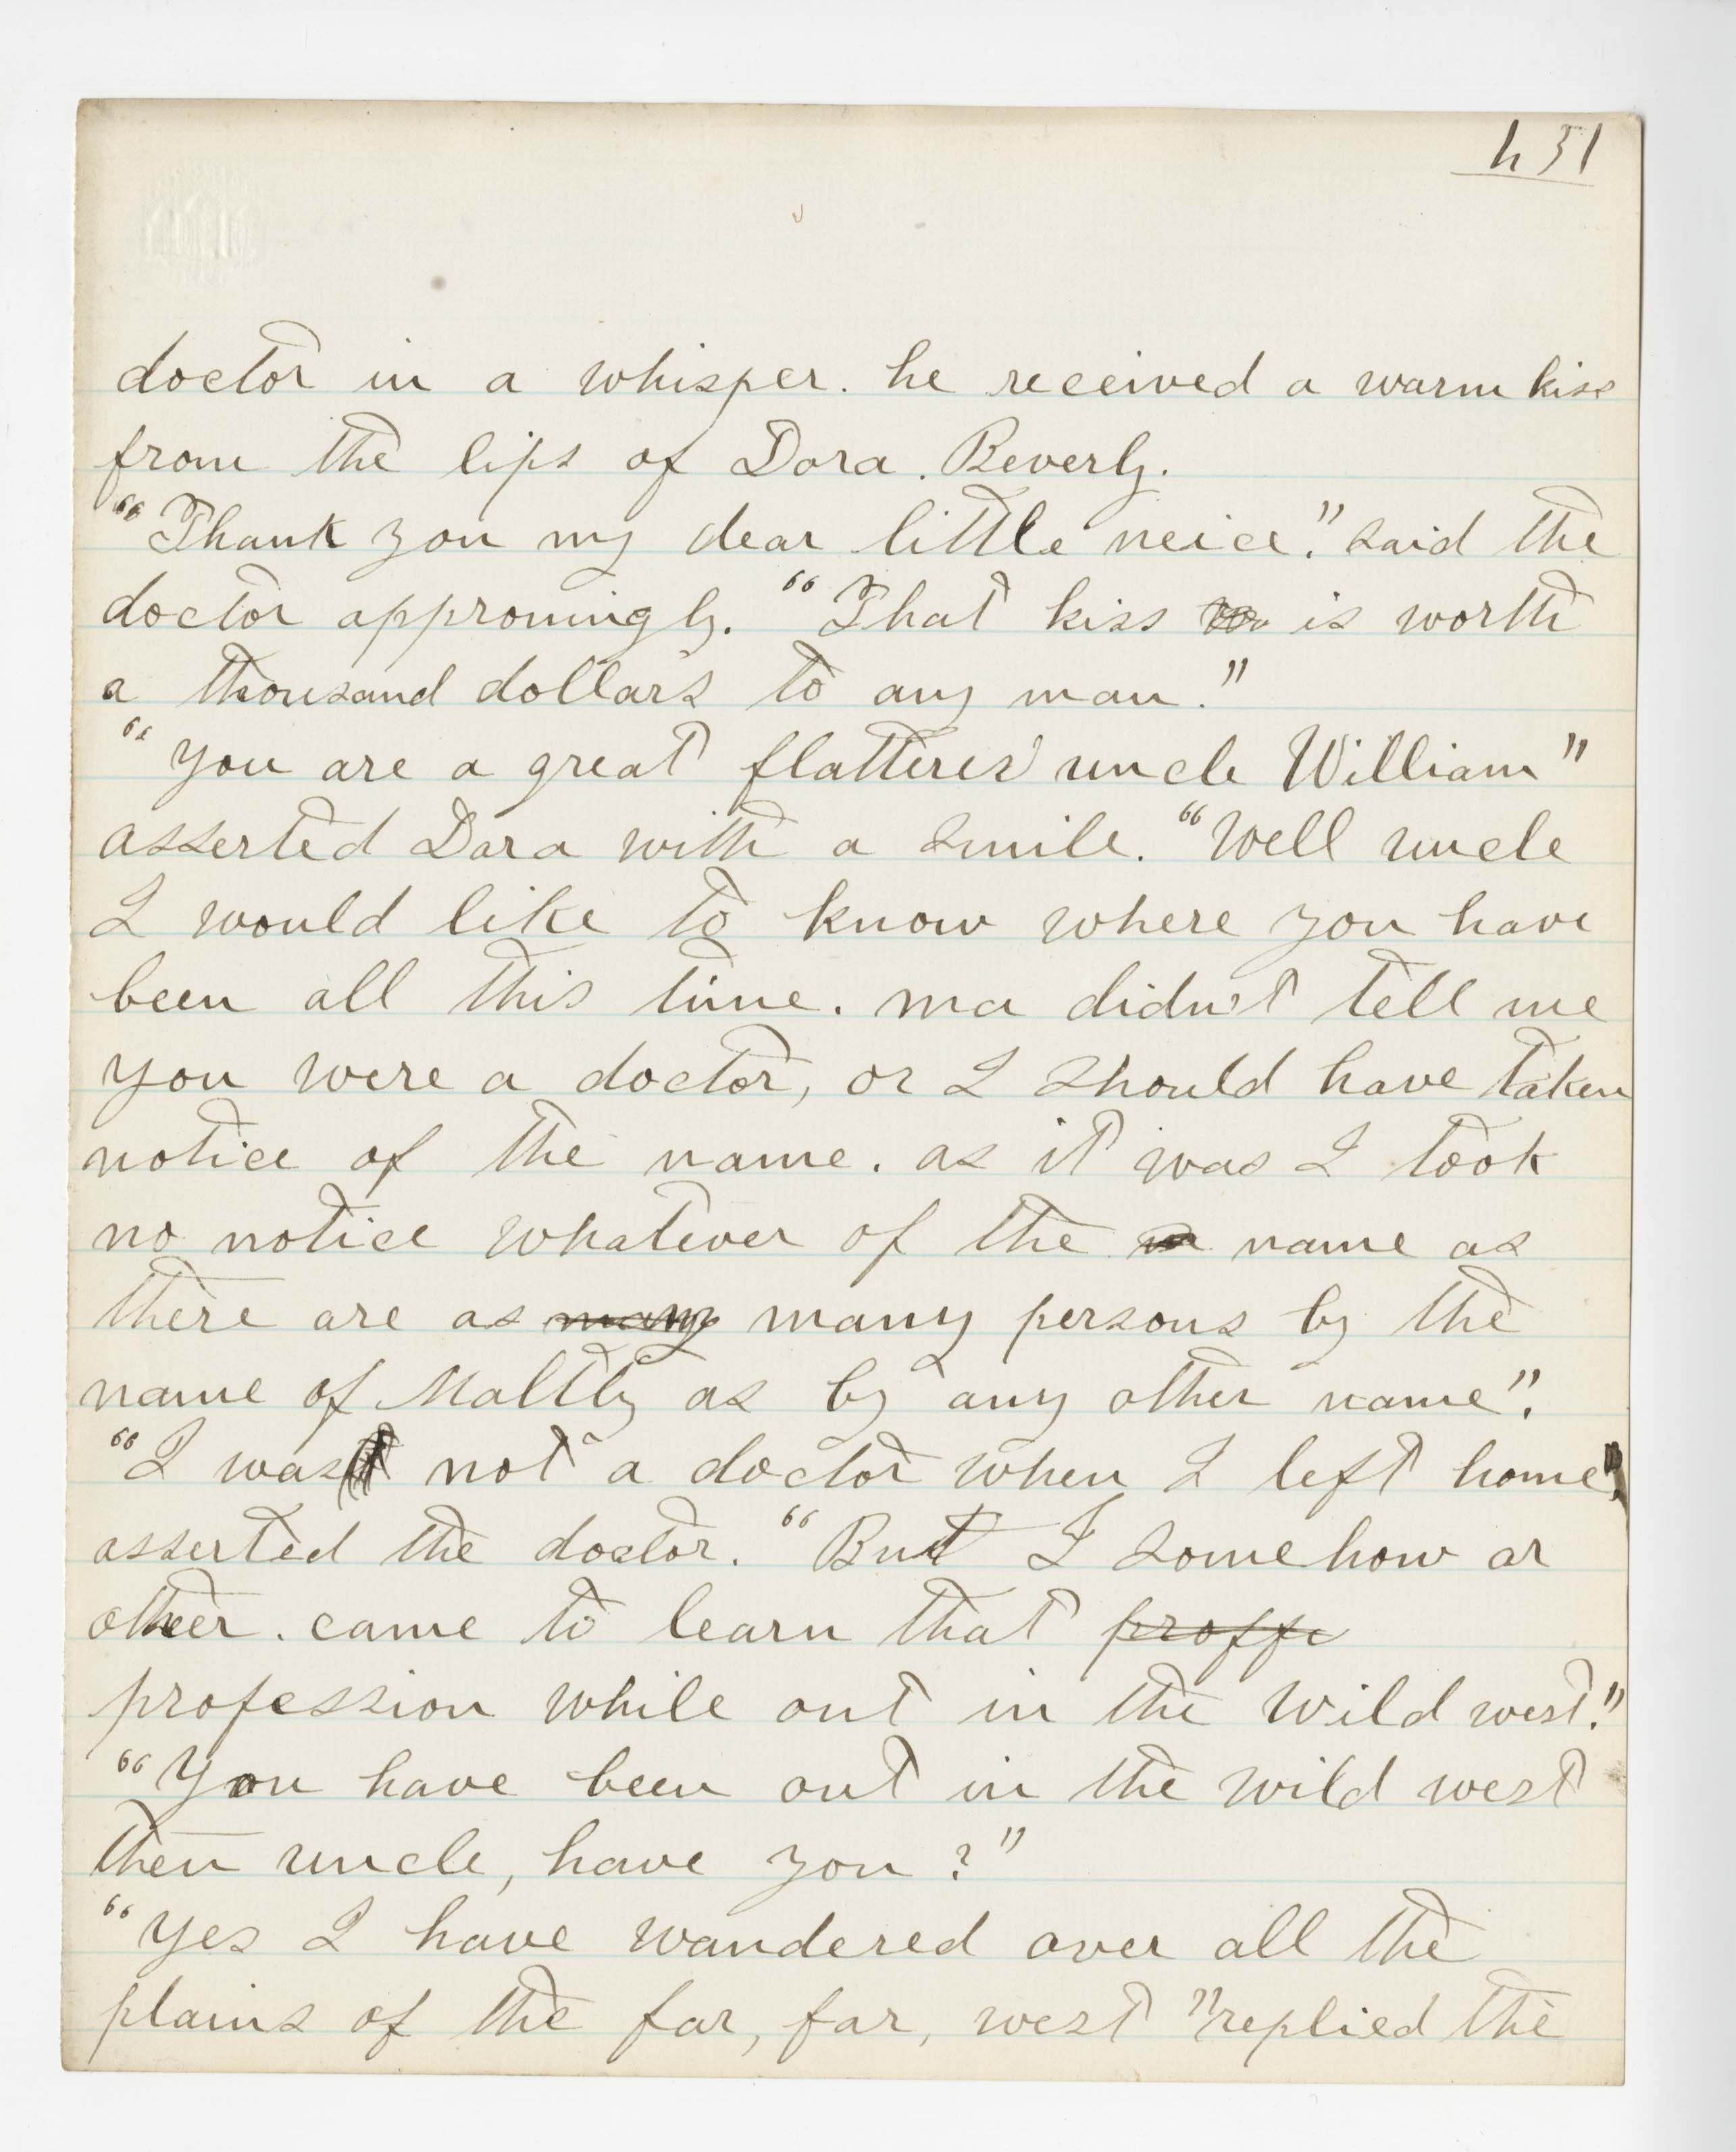 431
doctor in a whisper. he received a warm kiss
from the lips of Dora. Beverly.
"Thank you my dear little neice." said the
doctor approvingly. "That kiss is worth
a thousand dollars to any man."
"You are a great flatterer uncle William"
asserted Dora with a smile. "Well uncle
I would like to know where you have
been all this time. ma didn't tell me
you were a doctor, or I should have taken
notice of the name. as it was I took
no notice whatever of the name as
there are as many many persons by the
name of Maltby as by any other name".
"I was not a doctor when I left home",
asserted the doctor. "But I somehow or
other. came to learn that proffe
profession while out in the wild west."
"You have been out in the wild west
then uncle, have you?"
"Yes I have wandered over all the
plains of the far, far, west" replied the